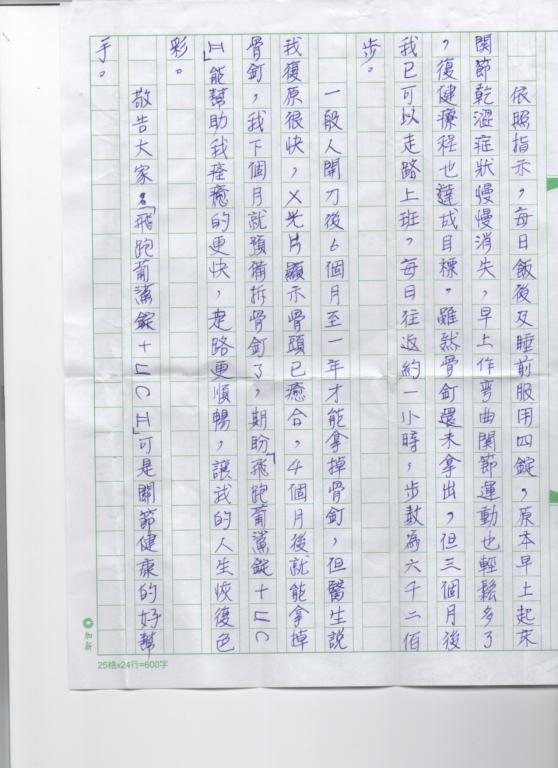 依照指示，每日飯後及睡前服用四錠，原本早上起來
關節乾澀症狀慢慢消失，早上作彎曲關節運動也輕鬆多了
，復健療程也達成目標。雖然骨釘還未拿出，但三個月後
我已可以走路上班，每日往返約一小時，步數為六千二佰
步。
一般人開刀後6個月至一年才能拿掉骨釘，但醫生説
我復原很快，X光片顯示骨頭已癒合，4個月後就能拿掉
骨釘，我下個月就預備拆骨釘了，期盼「飛跑葡薩錠＋UC
II」能幫助我痊癒的更快，走路更順暢，讓我的人生恢復色
彩。
敬告大家：「飛跑葡薩錠＋UCII」可是關節健康的好幫
手。
25格x24行=600字